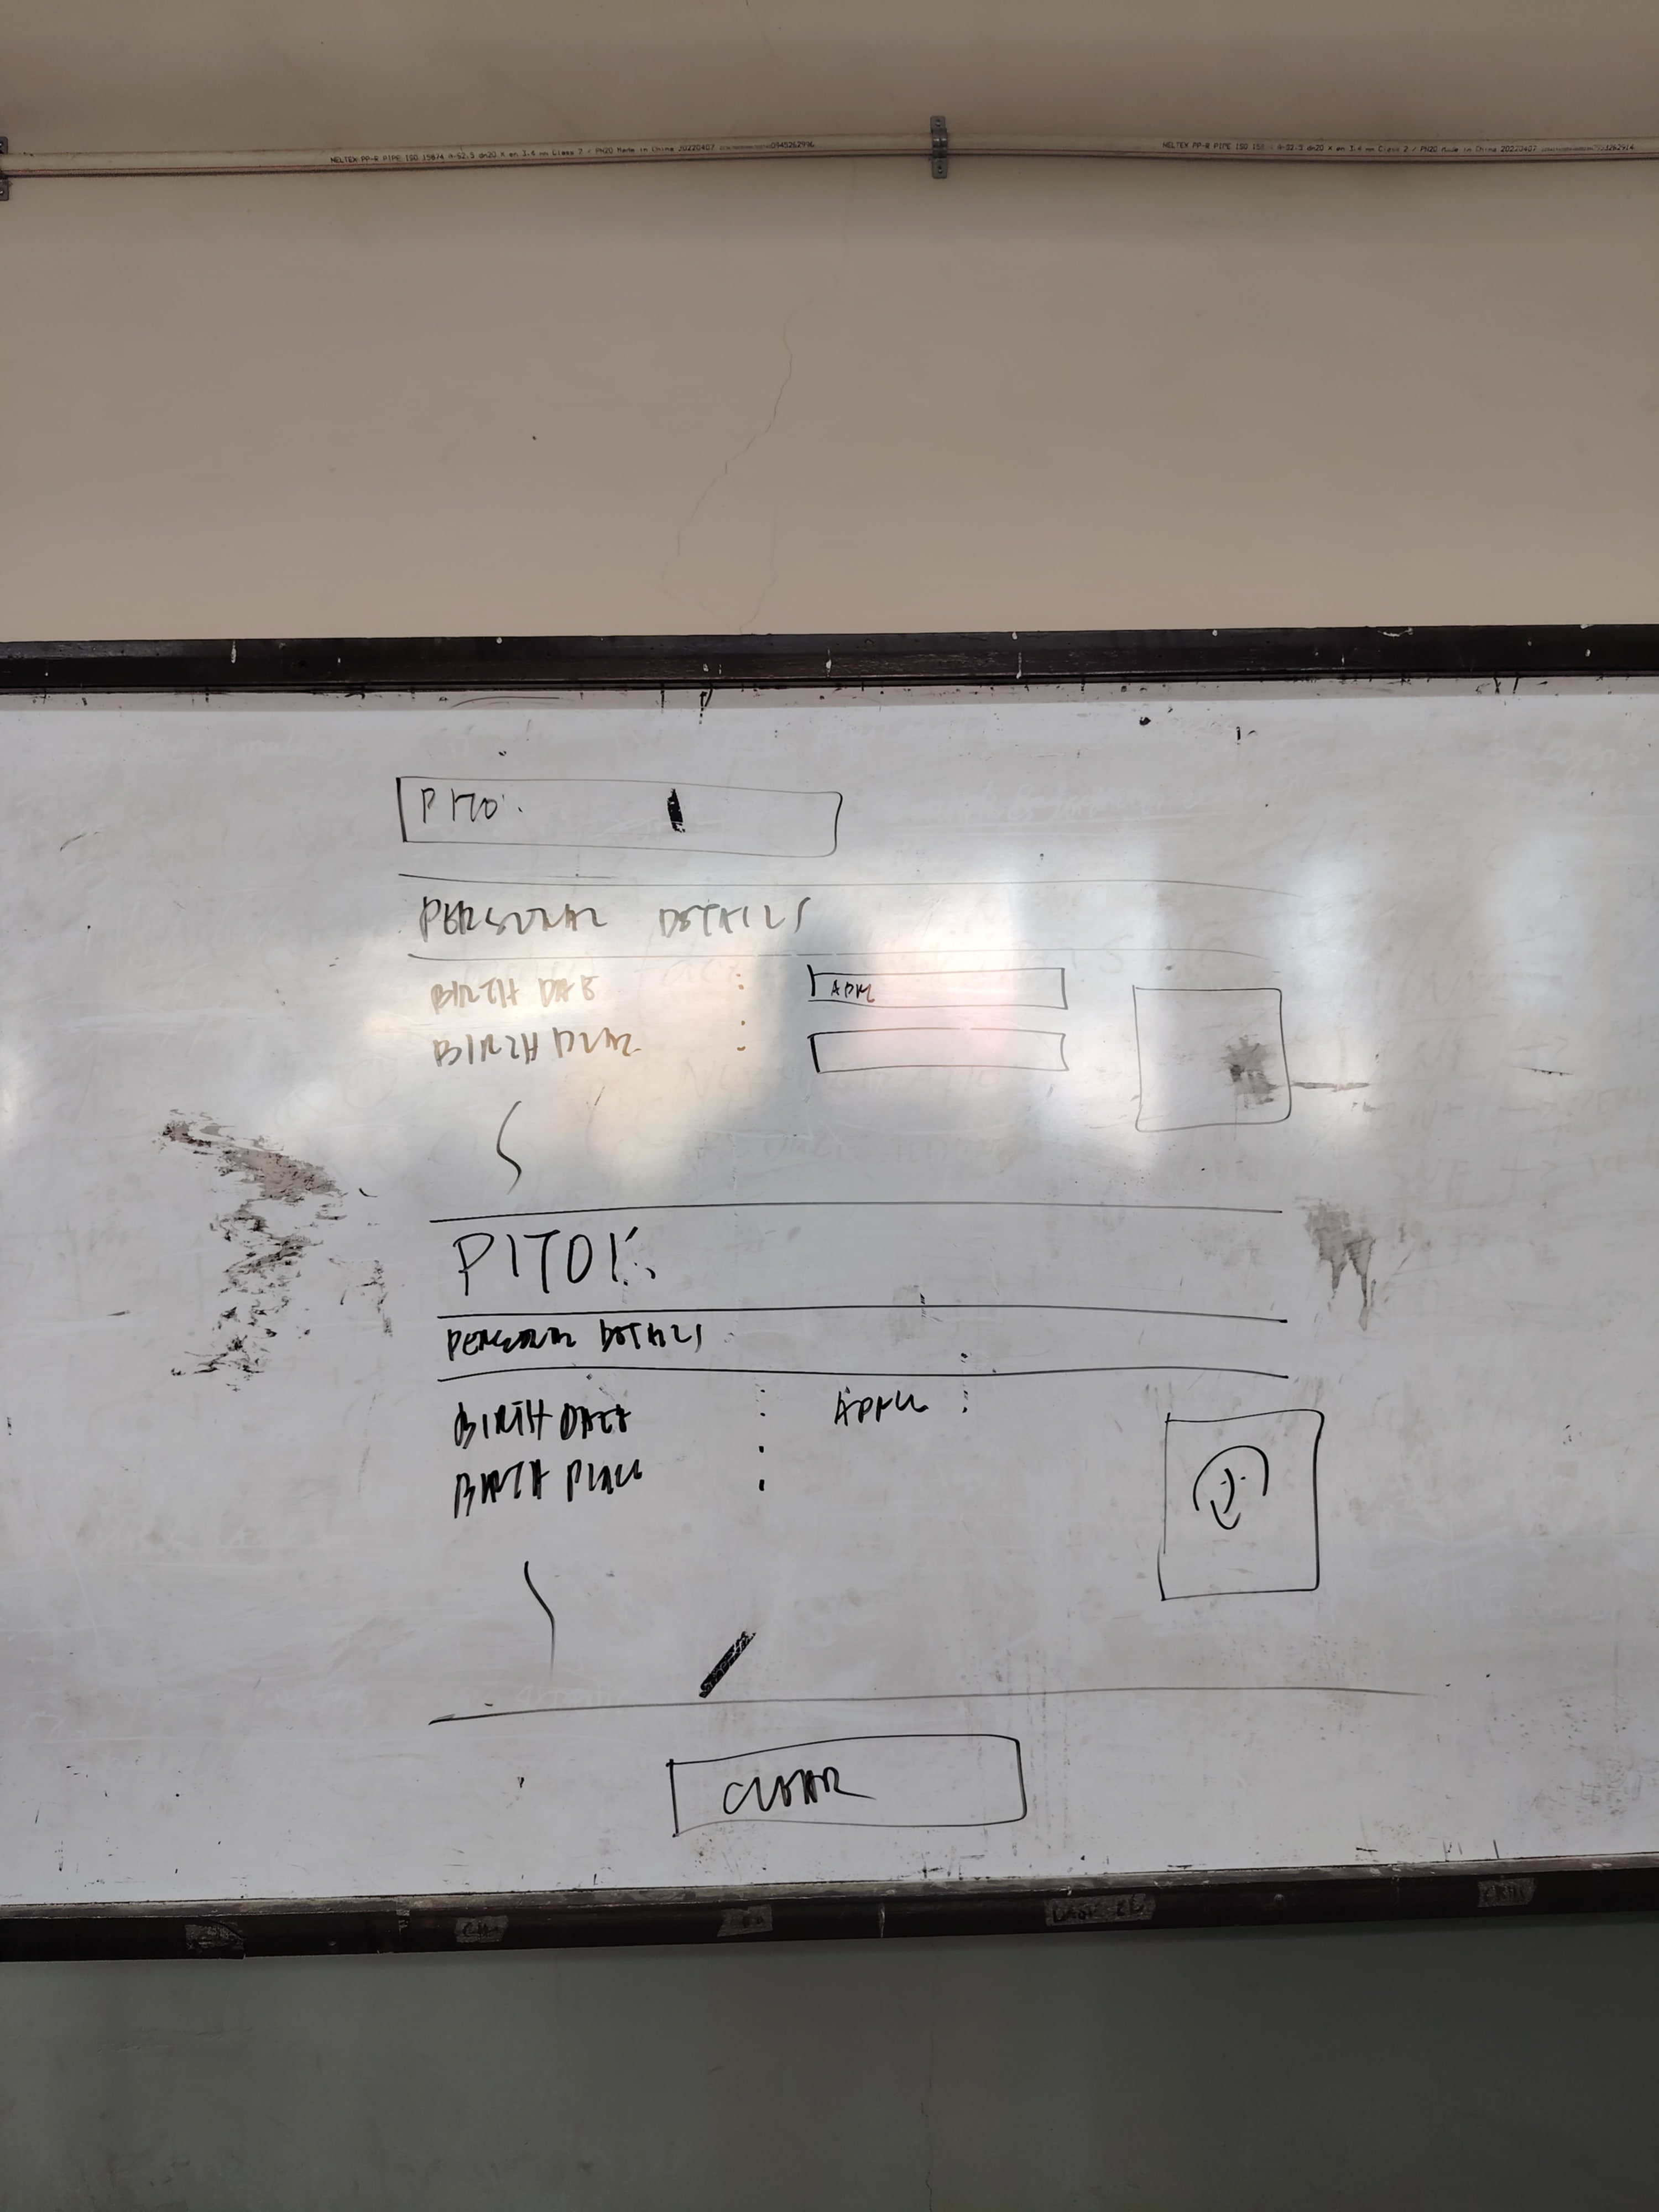 NELTEX PP-R PIPE ISO 15874 A-S2.5 dn20 X en 3.4 mm Class 2 / PN20 Made in China 20220407
NELTEX PP-R PIPE ISO A-S2.5 dn20 X en 3.4 mm Class 2 / PN20 Made in China 20220407
PITO
PERSONAL DETAILS
BIRTH DATE :
BIRTH PLACE :
PITOK
PERSONAL DETAILS
BIRTH DATE : APRIL
BIRTH PLACE :
CLEAR